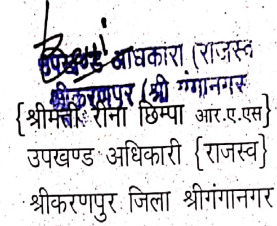 उपखण्ड अधिकारी (राजस्व
श्रीकरणपुर (श्री गंगानगर
{श्रीमती रीना छिम्पा आर.ए.एस}
उपखण्ड अधिकारी {राजस्व}
श्रीकरणपुर जिला श्रीगंगानगर